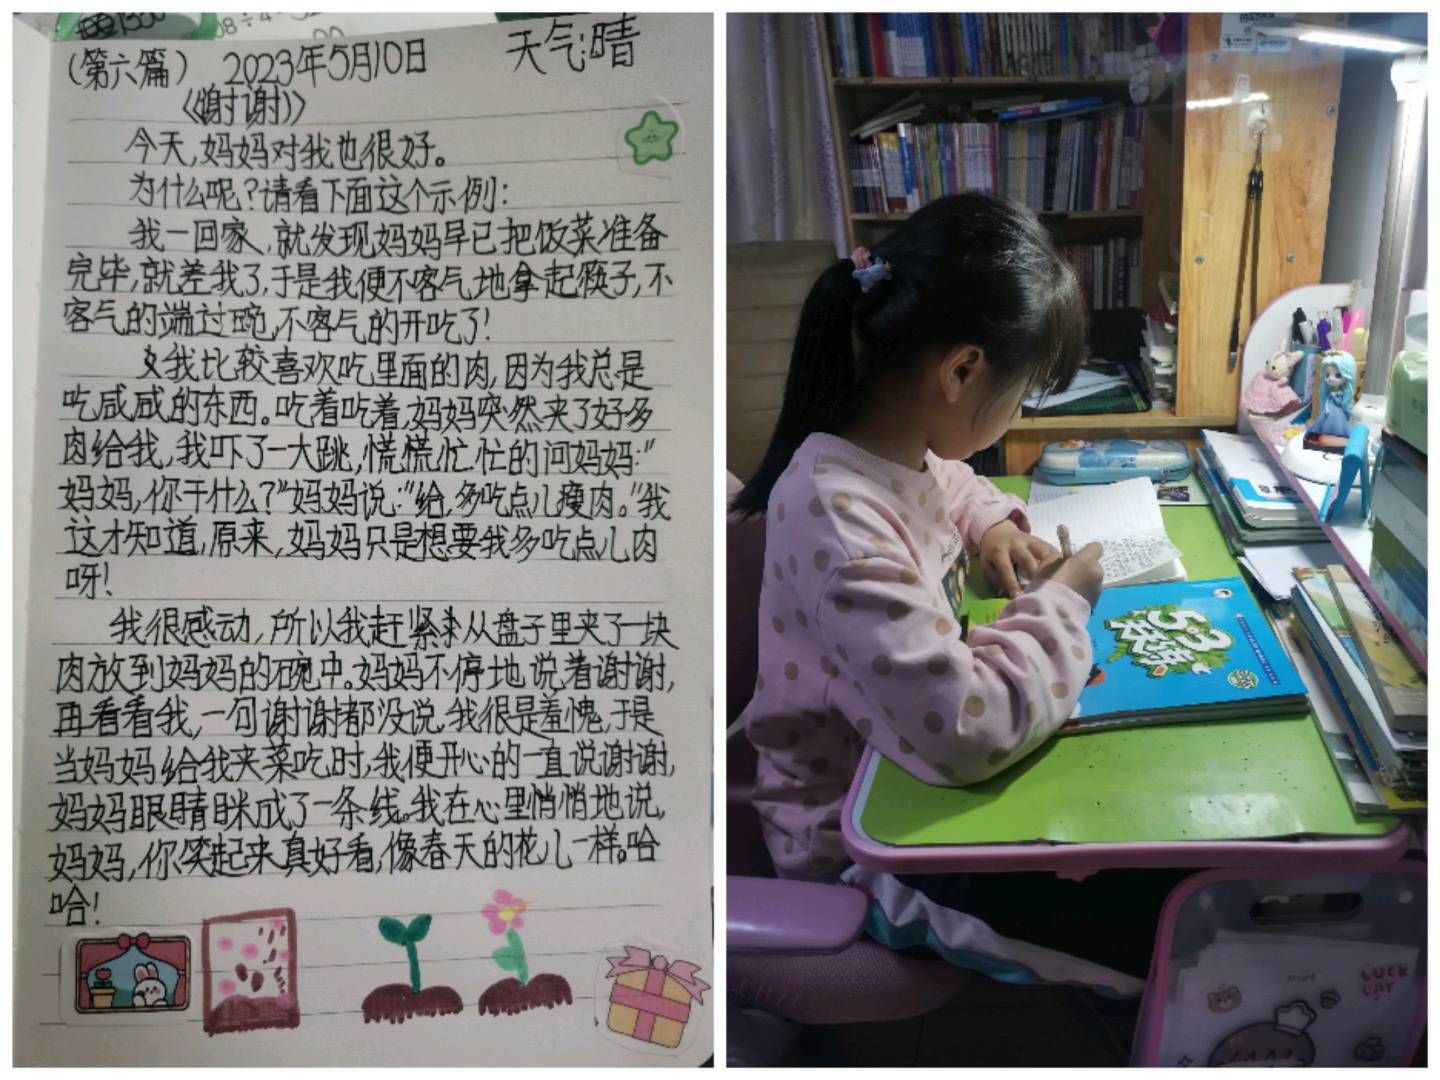 （第六篇） 2023年5月10日 天气:晴
《谢谢》
今天,妈妈对我也很好。
为什么呢?请看下面这个示例:
我一回家,就发现妈妈早已把饭菜准备
完毕,就差我了,于是我便不客气地拿起筷子,不
客气的端过碗,不客气的开吃了!
我比较喜欢吃里面的肉,因为我总是
吃咸咸的东西。吃着吃着,妈妈突然夹了好多
肉给我,我吓了一大跳,慌慌忙忙的问妈妈:“
妈妈,你干什么?”妈妈说:“给,多吃点儿瘦肉。”我
这才知道,原来,妈妈只是想要我多吃点儿肉
呀!
我很感动,所以我赶紧从盘子里夹了一块
肉放到妈妈的碗中。妈妈不停地说着谢谢,
再看看我,一句谢谢都没说,我很是羞愧,于是
当妈妈给我夹菜吃时,我便开心的一直说谢谢,
妈妈眼睛眯成了一条线。我在心里悄悄地说,
妈妈,你笑起来真好看,像春天的花儿一样。哈
哈!
5·3
天天练
LUCK
DAY